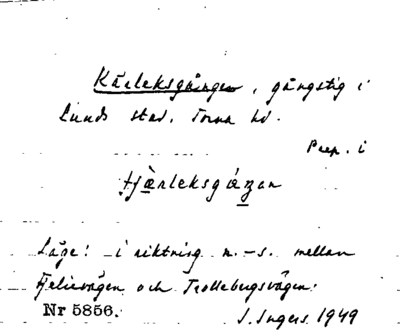 Kärleksgången, gångstig i
Lunds stad, Torna hd.
Prep. i
Läge: i riktning n.-s. mellan
Fjelievägen och Trollebergsvägen.
Nr 5856.
I. Ingers 1949